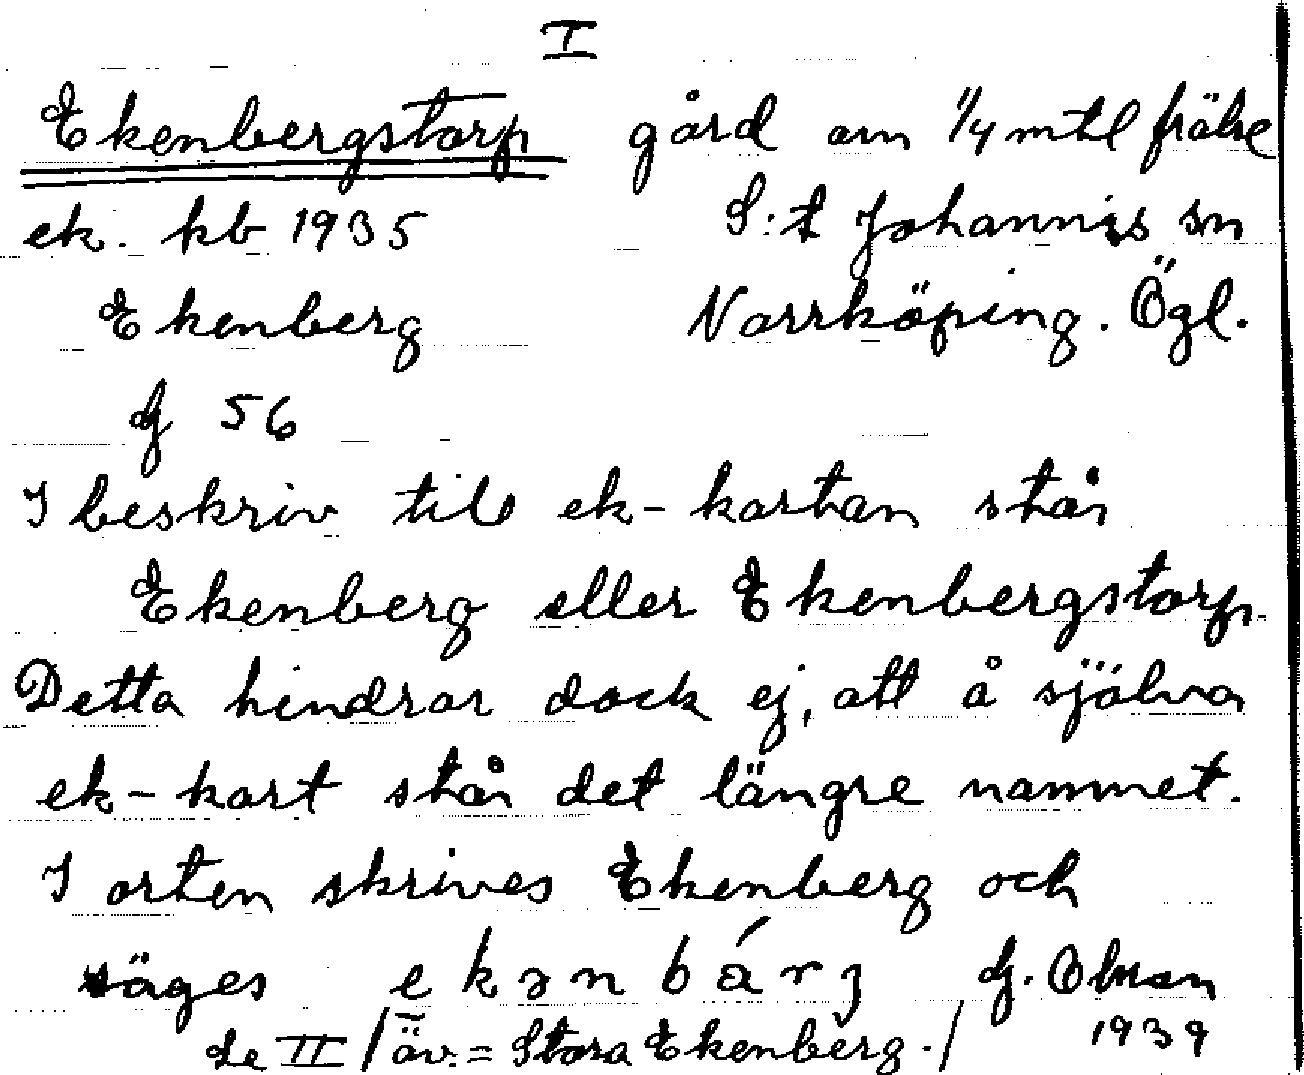 I
Ekenbergstorp gård om 1/4 mtl frälse
ek. kb 1935 S:t Johannis sn
Ekenberg Norrköping. Ögl.
G 56
I beskriv till ek-kartan står
Ekenberg eller Ekenbergstorp.
Detta hindrar dock ej, att å själva
ek-kart står det längre namnet.
I orten skrives Ekenberg och
säges G. Olson
1939
Se II / äv. = Stora Ekenberg. /